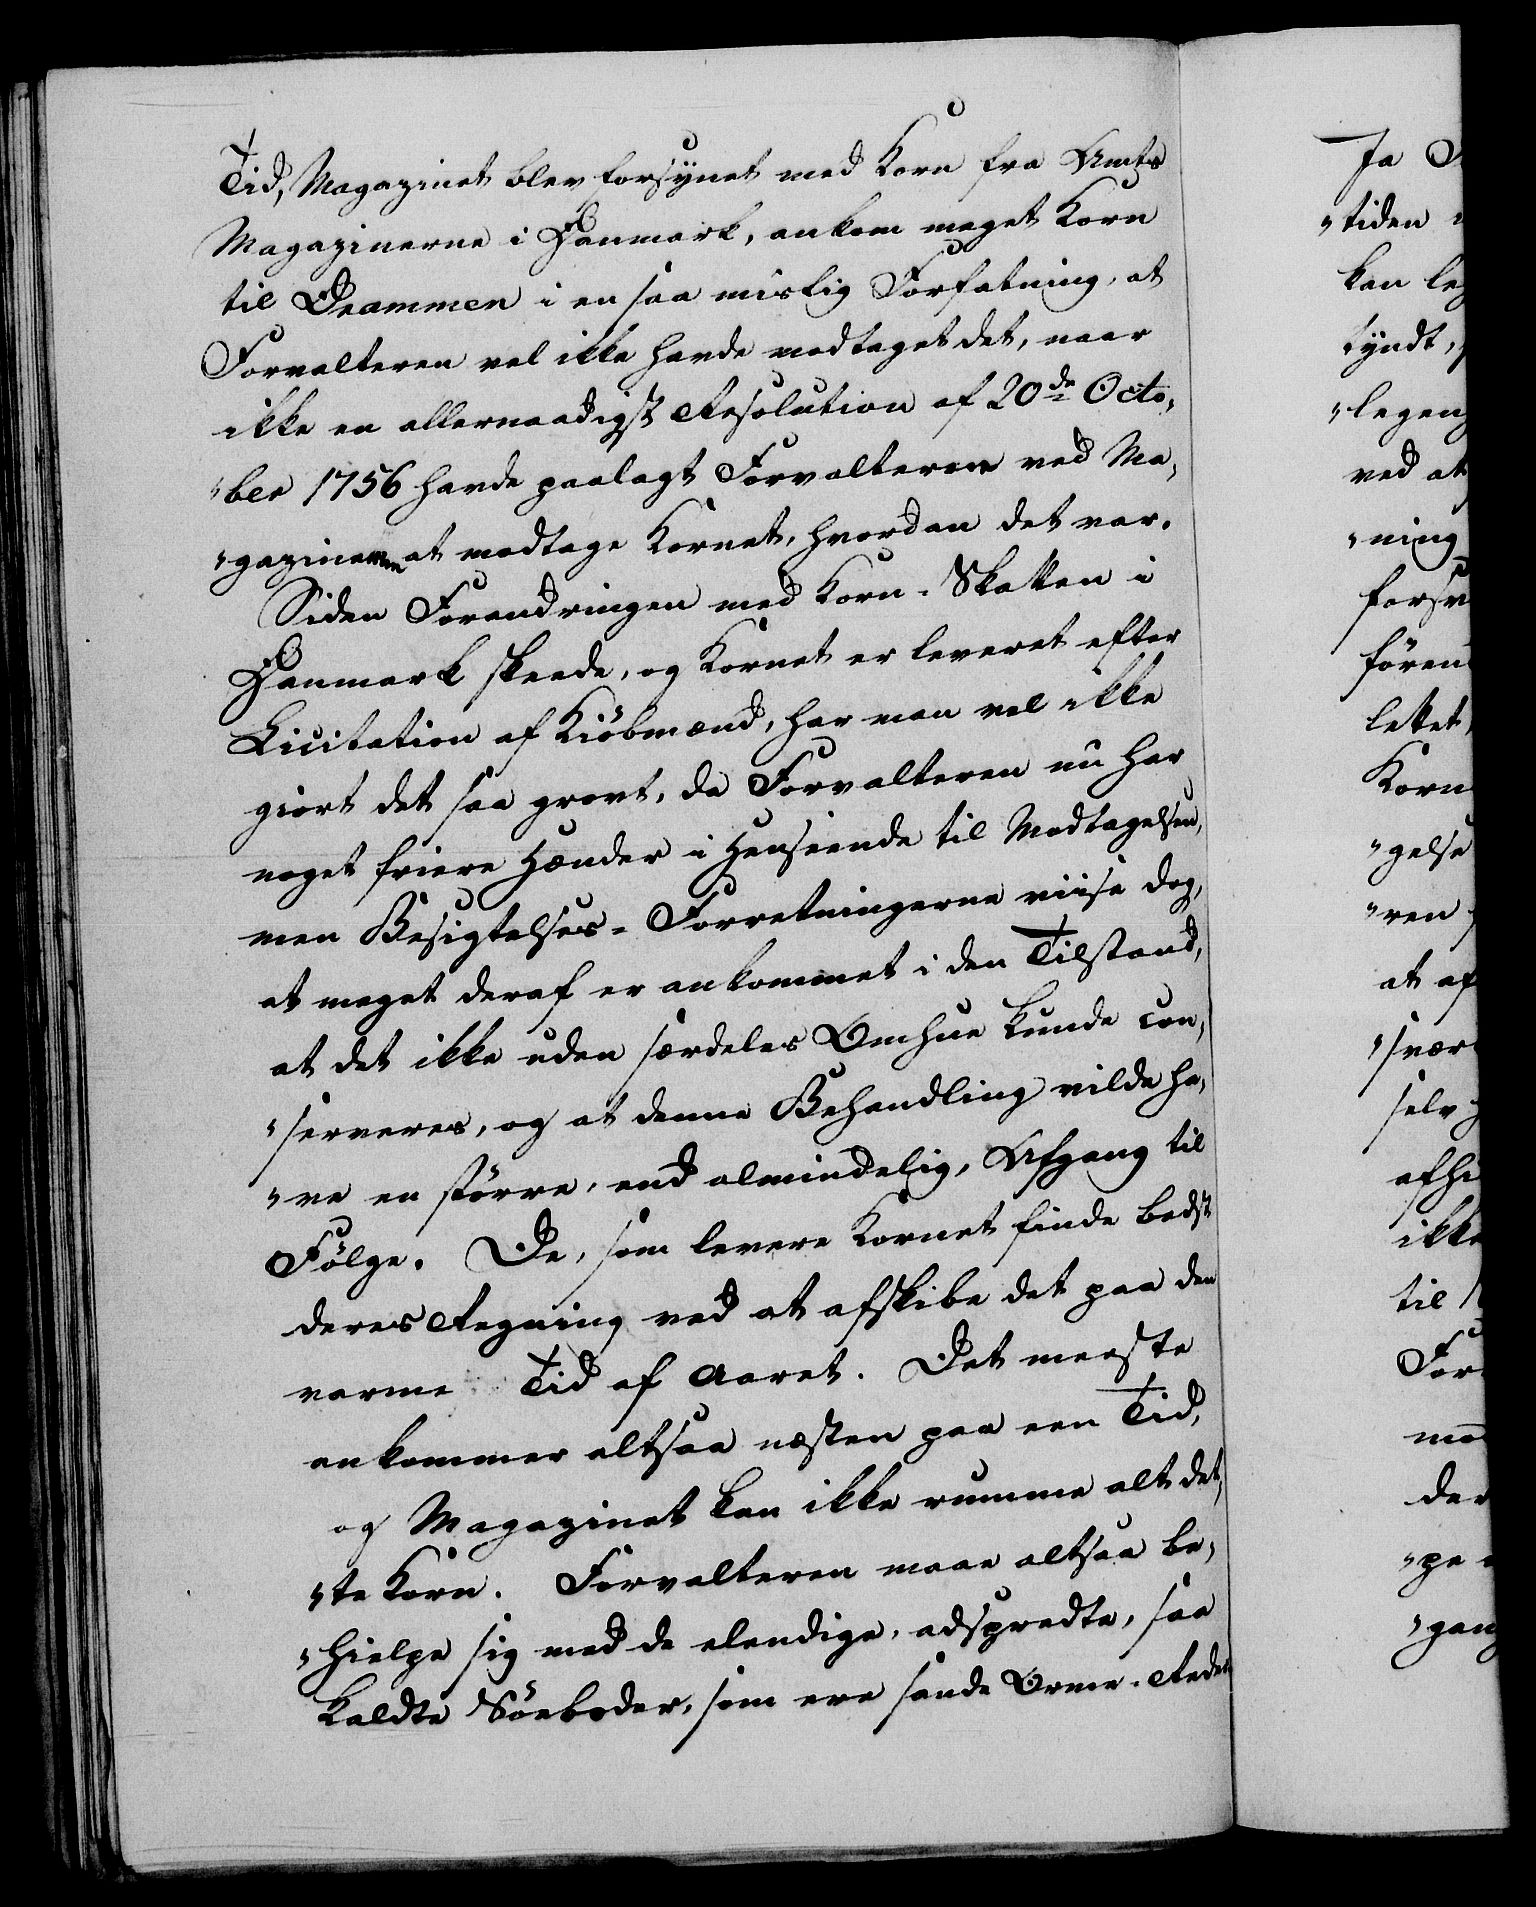 Tid, Magazinet blev forsÿnet med Korn fra Amts
Magazinerne i Danmark, ankom meget Korn
til Drammen i en saa mislig Forfatning, at
Forvalteren vel ikke havde modtaget det, naar
ikke en allernaadigst Resolution af 20de Octo„
„ber 1756 havde paalagt Forvalteren ved Ma„
„gazinerne at modtage Kornet, hvordan det var.
Siden Forandringen med Korn-Skatten i
Danmark skeede, og Kornet er leveret efter
Licitation af Kiöbmænd, har man vel ikke
giort det saa grovt, da Forvalteren nu har
noget friere Hænder i Henseende til Modtagelsen,
men Besigtelses-Forretningerne viise dog,
at meget deraf er ankommet i den Tilstand,
at det ikke uden særdeles Omhue kunde con„
„serveres, og at denne Behandling vilde ha„
„ve en större, end almindelig, Afgang til
Fölge. De, som levere Kornet finde bedst
deres Regning ved at afskibe det paa den
varme Tid af Aaret. Det meeste
ankommer altsaa næsten paa een Tid,
og Magazinet kan ikke rumme alt det„
„te Korn. Forvalteren maae altsaa be„
„hielpe sig med de elendige, adspredte, saa
kaldte Söeboder, som ere sande Orme-Reder
Ja
„tiden
kan
tÿndt,
„legen
ved at
„ning
fören
lettet
Korn
„gelse
„ren
at af
„svær
selv
ikke
til
For
„pe
„gang